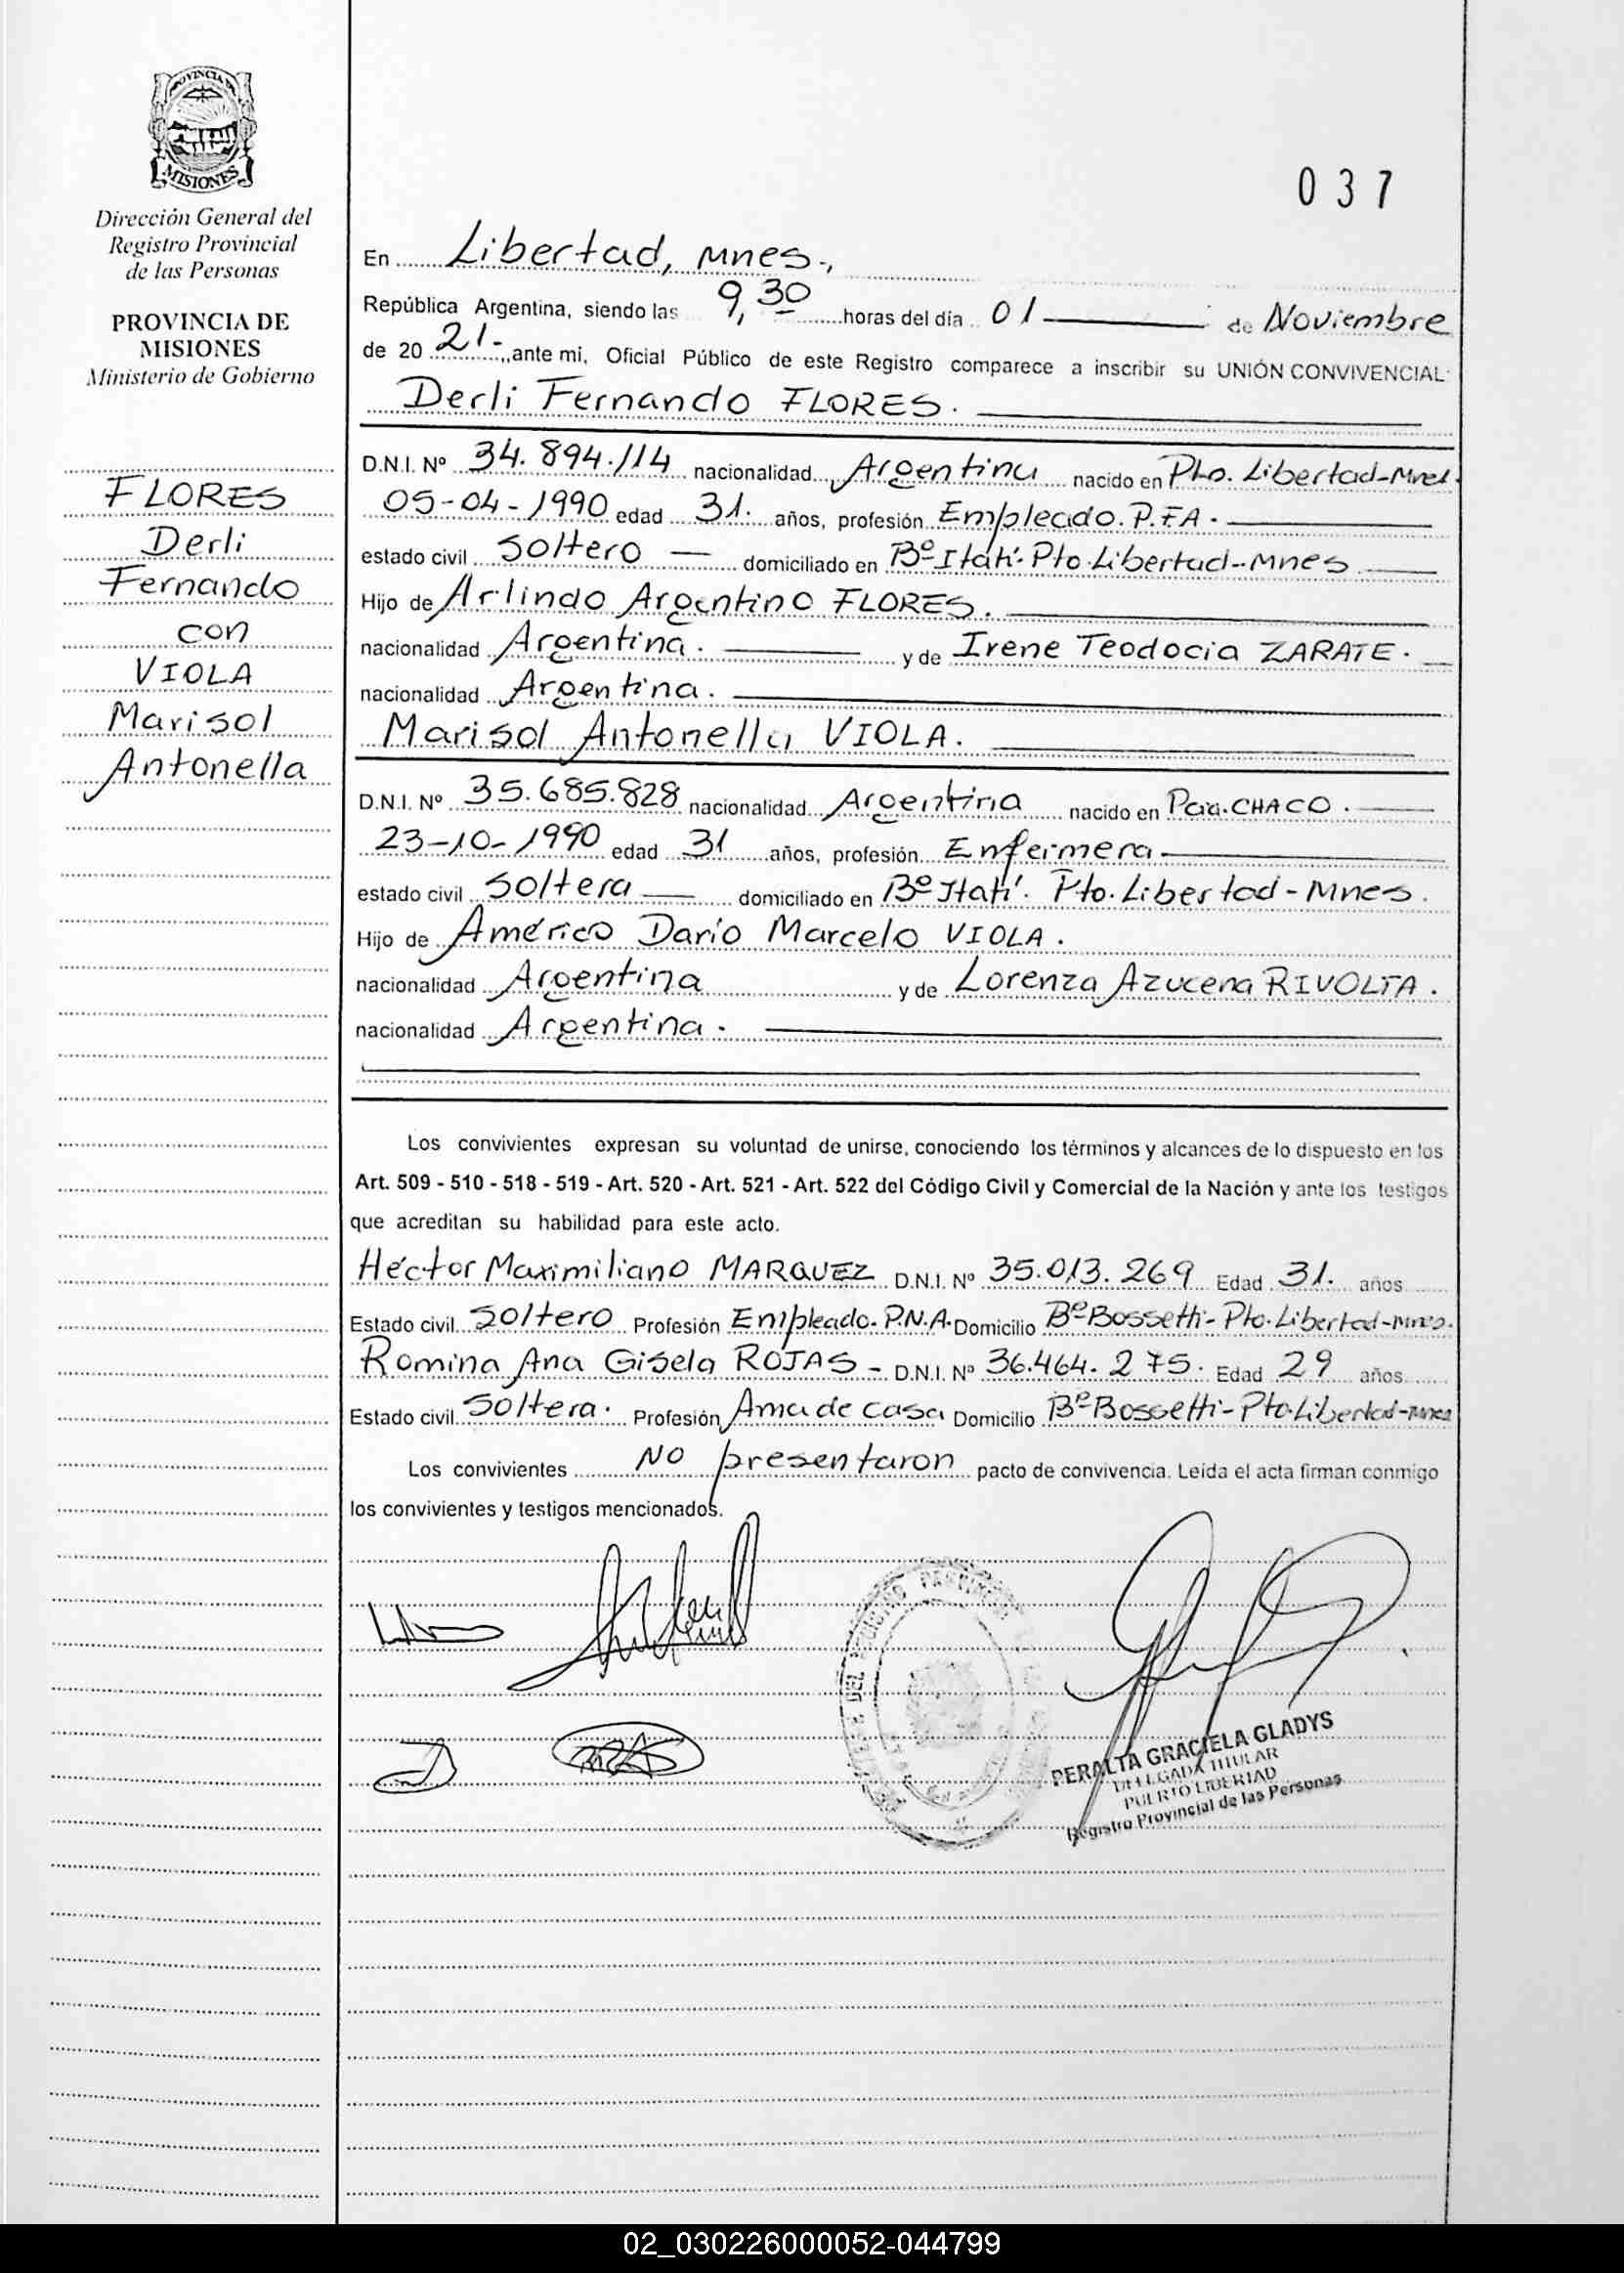 PROVINCIA DE
MISIONES
Dirección General del
Registro Provincial
de las Personas
PROVINCIA DE
MISIONES
Ministerio de Gobierno
FLORES
Derli
Fernando
con
VIOLA
Marisol
Antonella
037
En Libertad, Mnes.,
República Argentina, siendo las 9,30 horas del día 01 de Noviembre
de 2021.-, ante mi, Oficial Público de este Registro comparece a inscribir su UNIÓN CONVIVENCIAL:
Derli Fernando FLORES.
D.N.I. Nº 34.894.114 nacionalidad Argentina nacido en Pto. Libertad-Mnes.
05-04-1990 edad 31. años, profesión Empleado. P.F.A.
estado civil Soltero — domiciliado en Bº Itatí-Pto.Libertad-Mnes
Hijo de Arlindo Argentino FLORES.
nacionalidad Argentina. y de Irene Teodocia ZARATE.
nacionalidad Argentina.
Marisol Antonella VIOLA.
D.N.I. Nº 35.685.828 nacionalidad Argentina nacido en Pcia.CHACO.
23-10-1990 edad 31 años, profesión Enfermera
estado civil Soltera — domiciliado en Bº Itatí. Pto.Libertad-Mnes.
Hijo de Américo Darío Marcelo VIOLA.
nacionalidad Argentina y de Lorenza Azucena RIVOLTA.
nacionalidad Argentina.
Los convivientes expresan su voluntad de unirse, conociendo los términos y alcances de lo dispuesto en los
Art. 509 - 510 - 518 - 519 - Art. 520 - Art. 521 - Art. 522 del Código Civil y Comercial de la Nación y ante los testigos
que acreditan su habilidad para este acto.
Héctor Maximiliano MARQUEZ D.N.I. Nº 35.013.269 Edad 31. años
Estado civil Soltero Profesión Empleado. P.N.A. Domicilio Bº Bossetti-Pto.Libertad-Mnes.
Romina Ana Gisela ROJAS - D.N.I. Nº 36.464.275. Edad 29 años
Estado civil Soltera. Profesión Ama de casa Domicilio Bº Bossetti-Pto.Libertad-Mnes
Los convivientes NO presentaron pacto de convivencia. Leída el acta firman conmigo
los convivientes y testigos mencionados.
PERALTA GRACIELA GLADYS
DELEGADA TITULAR
PUERTO LIBERTAD
Registro Provincial de las Personas
02_030226000052-044799